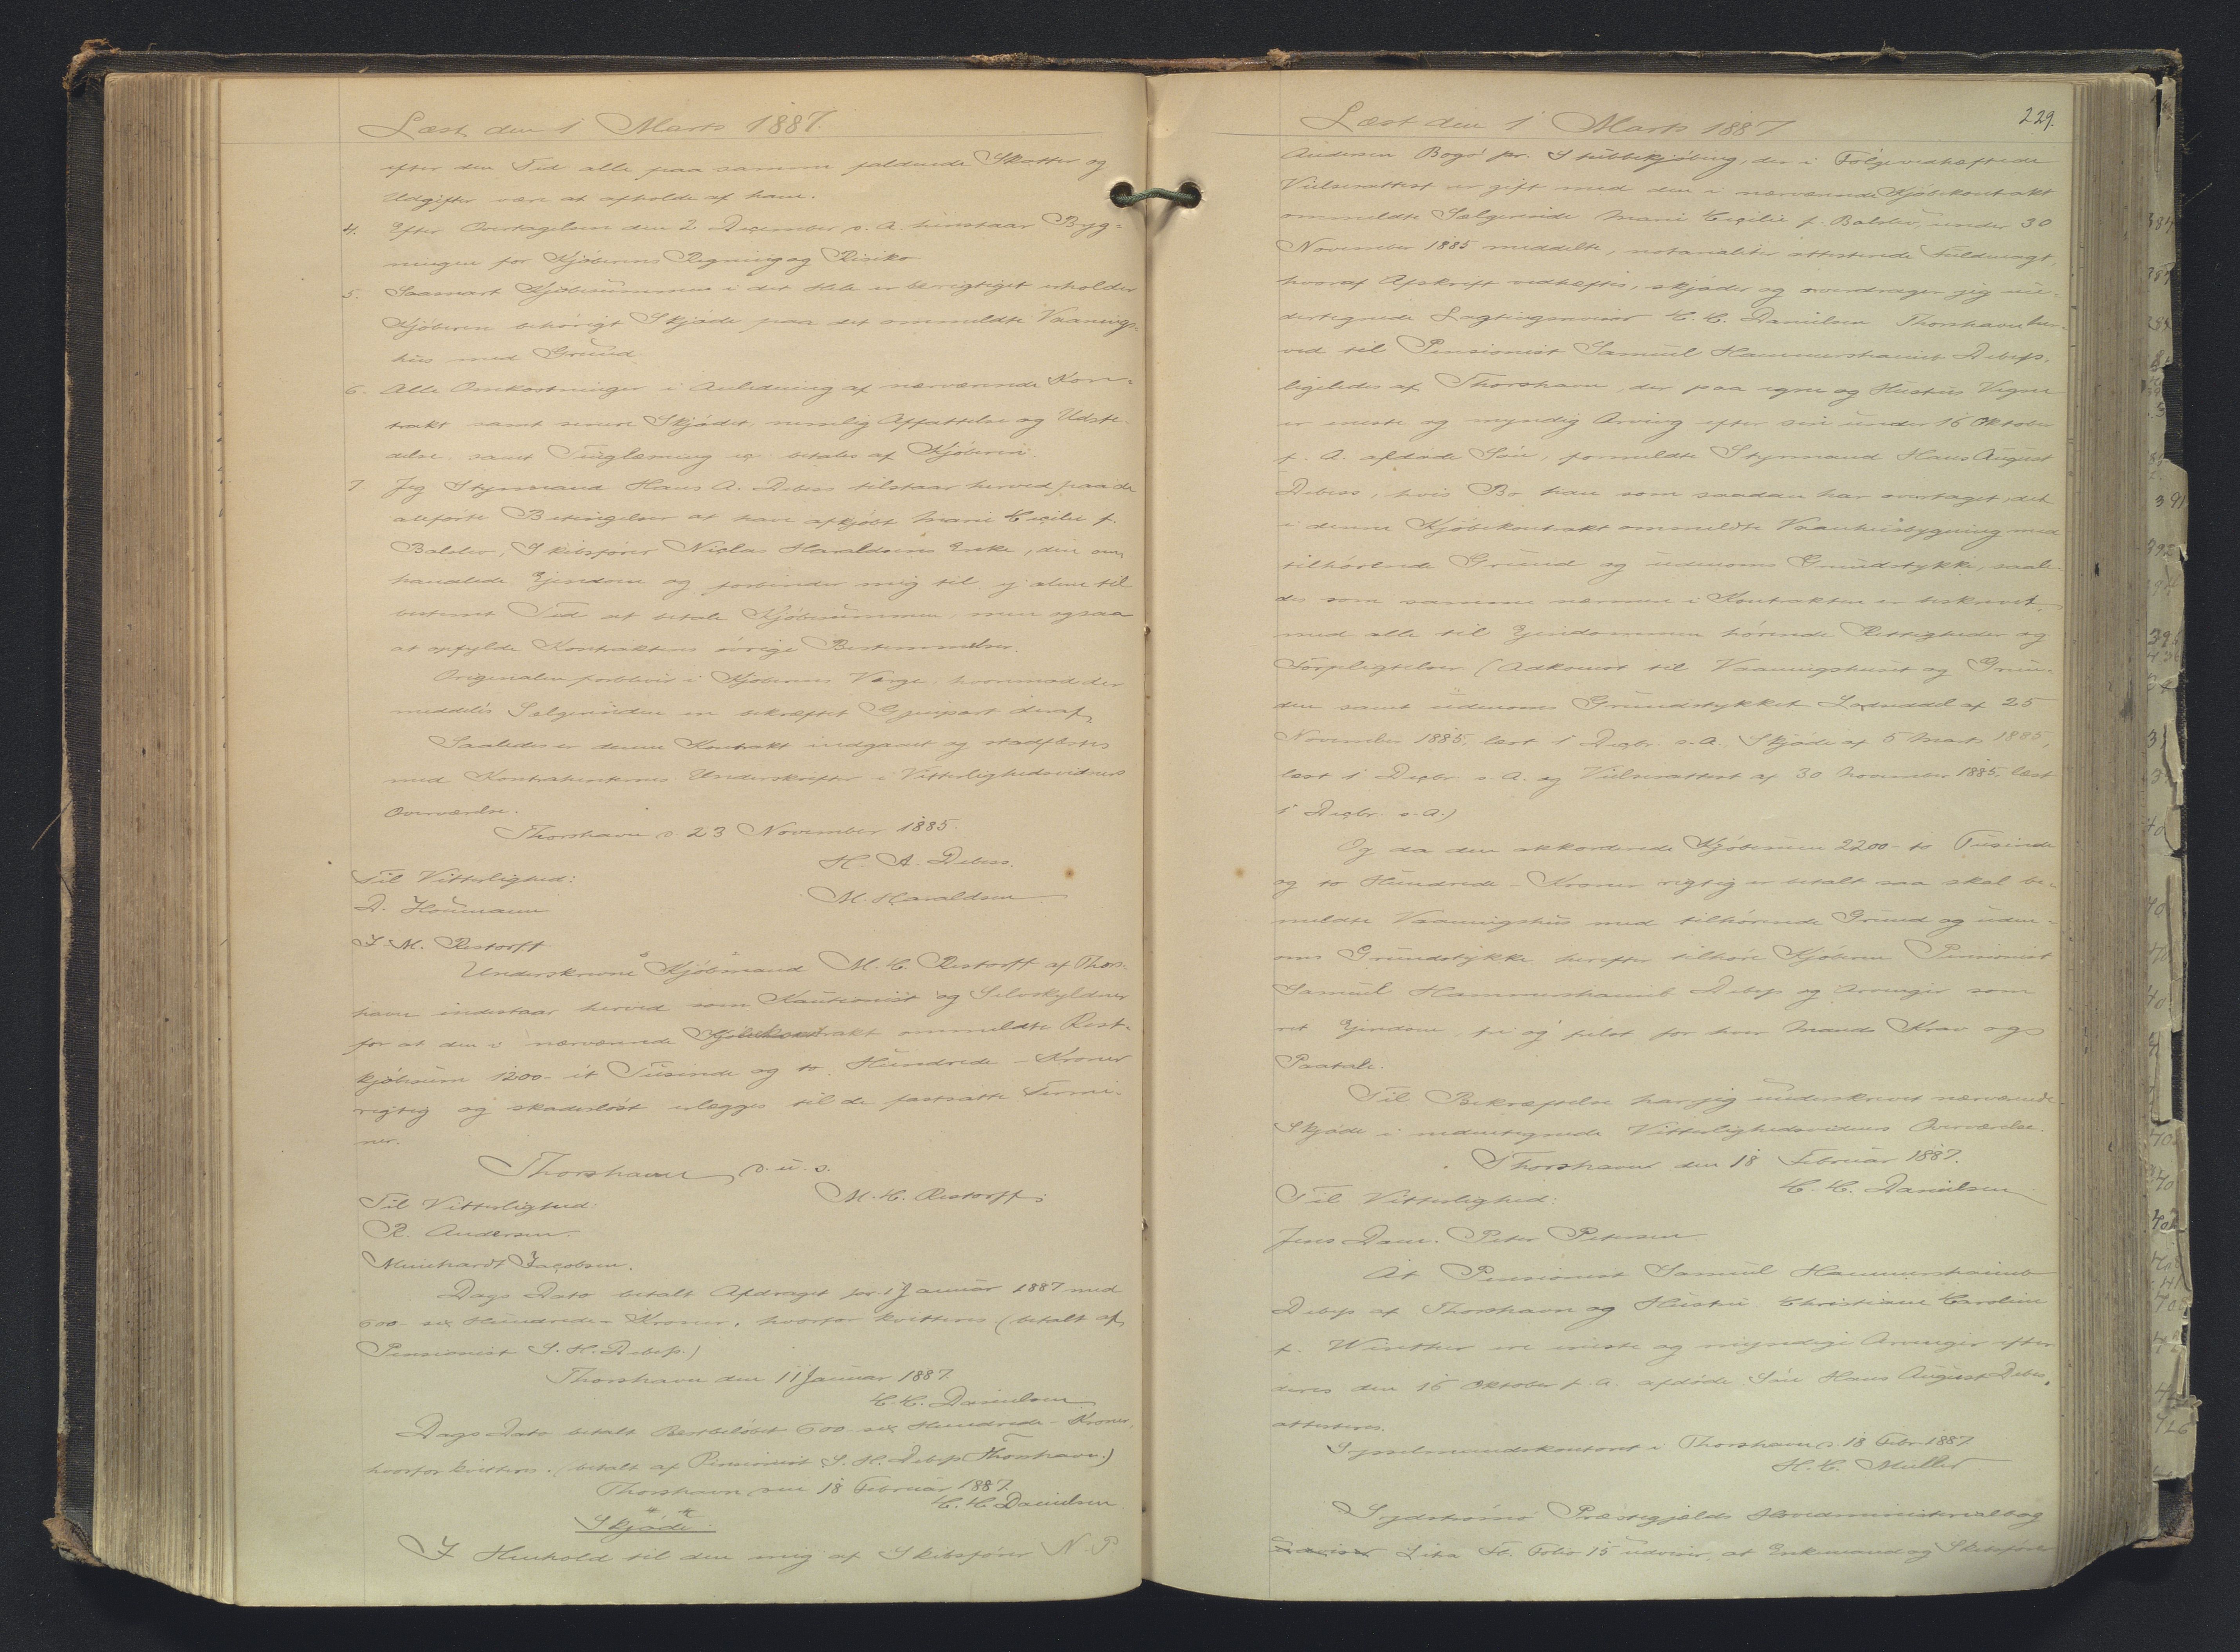 Læst den 1 Marts 1887.
efter den Tid alle paa samme faldende Skatter og
Udgifter være at afholde af ham.
4. Efter Overtagelsen den 2 December s. A. henstaar Byg-
ningen for Kjøberens Regning og Risiko
5. Saasnart Kjøbesummen i det Hele er berigtiget erholder
Kjøberen behørigt Skjøde paa det ommeldte Vaanings-
hus med Grund.
6. Alle Omkostninger i Anledning af nærværende Kon-
trakt samt senere Skjødet, nemlig Affattelse og Udste-
delse samt Tinglæsning betales af Kjøberen.
7. Jeg Styrmand Hans A. Debess tilstaar herved paa de
anførte Betingelser at have afkjøbt Marie Cecilie f.
Balslev, Skibsfører Niclas Haraldsens Enke, den om
handlede Ejendom og forbinder mig til ej alene til
bestemt Tid at betale Kjøbesummen, men ogsaa
at opfylde Kontraktens øvrige Bestemmelser.
Originalen forbliver i Kjøberens Værge, hvorimod der
meddeles Sælgerinden en bekræftet Gjenpart deraf.
Saaledes er denne Kontrakt indgaaet og stadfæstes
med Kontrahenternes Underskrifter i Vitterlighedsvidners
Overværelse.
Thorshavn d. 23 November 1885.
H. A. Debess.
Til Vitterlighed:
M. Haraldsen
D. Houmann
J. M. Restorff
Underskrevne Kjøbmand M. C. Restorff af Thors-
havn indestaar herved som Kautionist og Selvskyldner
for at den i nærværende Kjøbekontrakt ommeldte Rest-
kjøbesum 1200 - ét Tusinde og to Hundrede - Kroner
rigtig og skadesløst erlægges til de fastsatte Termi-
ner.
Thorshavn d. u. s.
M. C. Restorff
Til Vitterlighed:
R. Andersen.
Meinhardt Jacobsen.
Dags Dato betalt Afdraget for 1 Januar 1887 med
600 sex Hundrede - Kroner, hvorfor kvitteres (betalt af
Pensionist S. H. Debess.)
Thorshavn den 11 Januar 1887.
C. C. Danielsen
Dags Dato betalt Restbeløbet 600 sex Hundrede - Kroner,
hvorfor kvitteres. (betalt af Pensionist S. H. Debess Thorshavn.)
Thorshavn den 18 Februar 1887.
C. C. Danielsen
Skjøde.
I Henhold til den mig af Skibsfører N. P.
Læst den 1 Marts 1887
229.
Andersen Bogø pr. Stubbekjøbing, der i Følge vedhæftede
Vielsesattest er gift med den i nærværende Kjøbekontrakt
ommeldte Sælgerinde Marie Cecilie f. Balslev, under 30
November 1885 meddelte, notarialiter attesterede Fuldmagt,
hvoraf Afskrift vedhæftes, skjøder og overdrager jeg un-
dertegnede Lagtingsrevisor C. C. Danielsen Thorshavn her-
ved til Pensionist Samuel Hammershaimb Debess,
ligeledes af Thorshavn, der paa egne og Hustrus Vegne
er eneste og myndig Arving efter sin under 16 Oktober
f. A. afdøde Søn, formeldte Styrmand Hans August
Debess, hvis Bo han som saadan har overtaget, det
i denne Kjøbekontrakt ommeldte Vaanhusbygning med
tilhørende Grund og udenoms Grundstykke, saale-
des som samme nærmere i Kontrakten er beskrevet
med alle til Ejendommen hørende Rettigheder og
Forpligtelser (Adkomst til Vaaningshuset og Grun-
den samt udenoms Grundstykket Lodseddel af 25
November 1885, læst 1 Decbr. s. A. Skjøde af 5 Marts 1885,
læst 1 Decbr. s. A. og Vielsesattest af 30 November 1885, læst
1 Decbr. s. A.)
Og da den akkorderede Kjøbesum 2200 - to Tusinde
og to Hundrede - Kroner rigtig er betalt saa skal be-
meldte Vaaningshus med tilhørende Grund og uden-
oms Grundstykke herefter tilhøre Kjøberen Pensionist
Samuel Hammershaimb Debess og Arvinger som
ret Ejendom fri og frelst for hver Mands Krav og
Paatale.
Til Bekræftelse har jeg underskrevet nærværende
Skjøde i medundertegnede Vitterlighedsvidners Overværelse.
Thorshavn den 18 Februar 1887.
C. C. Danielsen
Til Vitterlighed:
Jens Dam. Peter Petersen
At Pensionist Samuel Hammershaimb
Debess af Thorshavn og Hustru Christiane Caroline
f. Winther ere eneste og myndige Arvinger efter
deres den 16 Oktober f. A. afdøde Søn Hans August Debess,
attesteres.
Sysselmandskontoret i Thorshavn d. 18 Febr 1887
H. C. Müller
Sydstrømø Præstegjælds Hovedministerialbog
Lita Fb. Folio 15 udviser, at Enkemand og Skibsfører